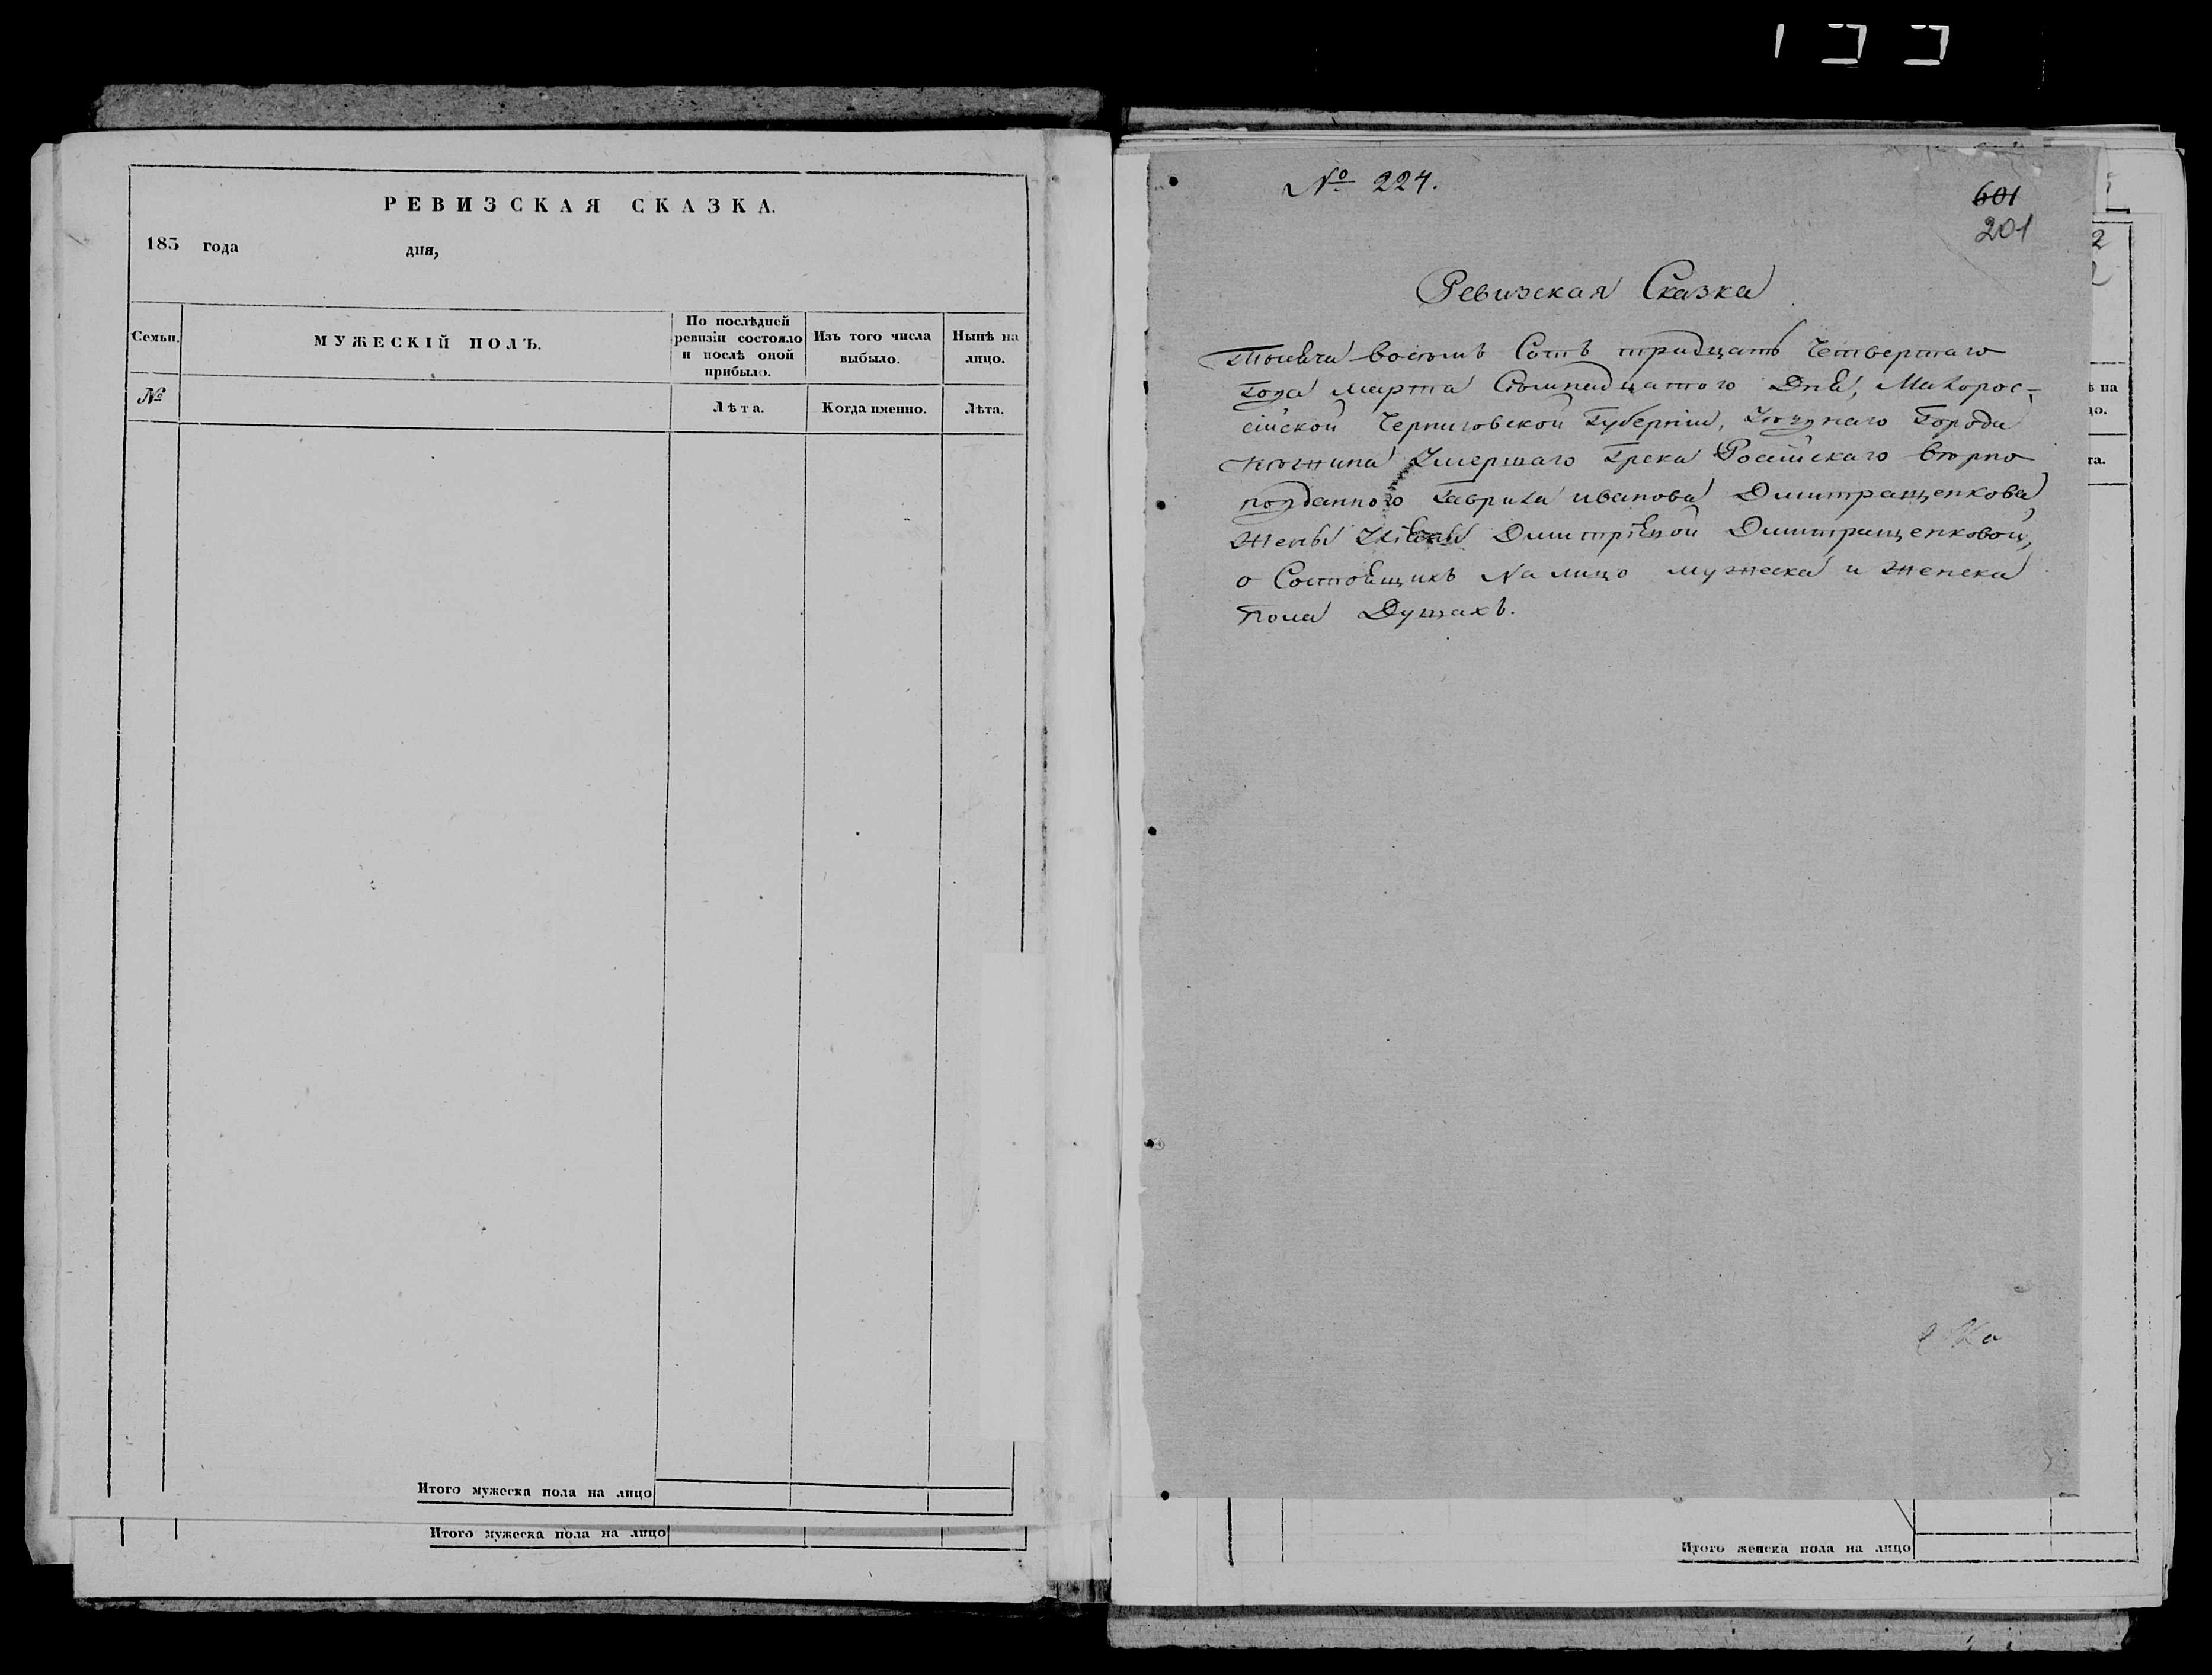 РЕВИЗСКАЯ СКАЗКА.
185 года дня,
Семьи. МУЖЕСКІЙ ПОЛЪ. По послѣдней ревизіи состояло и послѣ оной прибыло. Изъ того числа выбыло. Нынѣ на лицо.
№ Лѣта. Когда именно. Лѣта.
Итого мужеска пола на лицо
Итого мужеска пола на лицо
№ 224.
601
201
Ревизская Сказка
Тысяча восемь Сотъ тридцать Четвертаго
Года марта Дня, Малорос-
сійской Черниговской Губерніи, Города
Нѣжина Умершаго Грека Російскаго вѣрно
подданного Гаврила иванова Димитращенкова,
Жены Димитріевой Димитращенковой,
о Состоящихъ На лицо мужеска и женска
пола Душахъ.
Итого женска пола на лицо